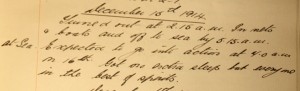 December 15th 1914.
Turned out at 2.15 a.m. In
boats and off to sea by 5.15 a.m.
at Sea Expected to go into action at 4.0 a.m
on 16th. Got no extra sleep but everyone
in the best of spirits.